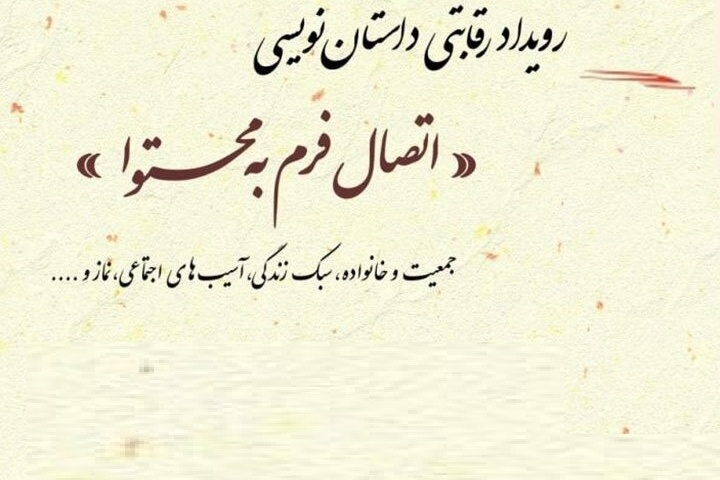 رویداد رقابتی داستان‌نویسی
« اتصال فرم به محتوا »
جمعیت و خانواده، سبک زندگی، آسیب‌های اجتماعی، نماز و ....